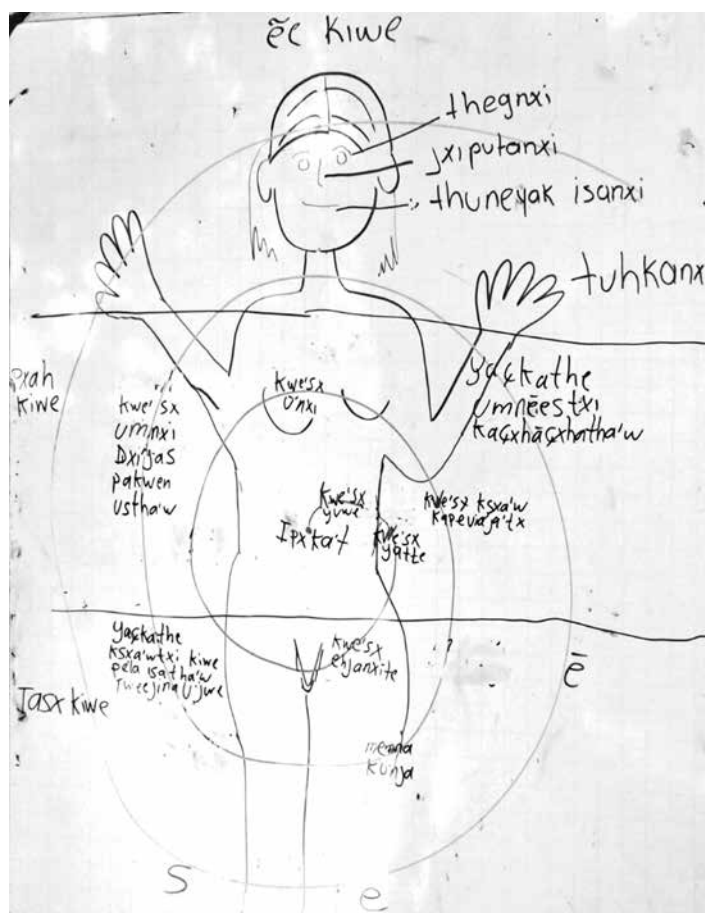 ẽc kiwe
thegnxi
jxiputanxi
thuneyak isanxi
tuhkanx
kiwe
kwe'sx
umnxi
Dxijas
pakwen
ustha'w
kwe'sx
u'nxi
yaçkathe
umnẽestxi
kaçxhãçxhatha'w
kwe'sx
yuwe
Ipx ka't
kwe'sx
yatte
kwe'sx ksxa'w
yaçkathe
ksxa'wtxi kiwe
pela isatha'w
kwe'sx
ehjanxite
Tasx kiwe
ẽ
kunja
S
e